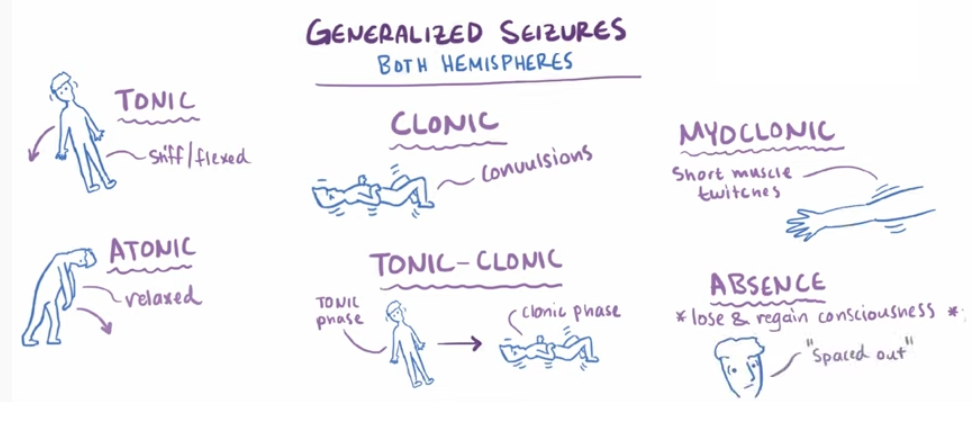 GENERALIZED SEIZURES
BOTH HEMISPHERES
TONIC
stiff/flexed
ATONIC
relaxed
CLONIC
convulsions
TONIC-CLONIC
TONIC
phase
clonic phase
MYOCLONIC
Short muscle
twitches
ABSENCE
* lose & regain consciousness *
"spaced out"